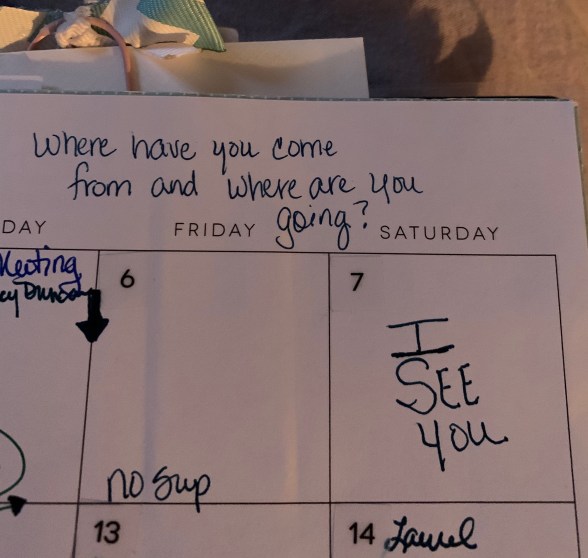 Where have you come
from and where are you
going?
DAY FRIDAY SATURDAY
Meeting
6
7
I
SEE
you
no sup
13
14 Laurel